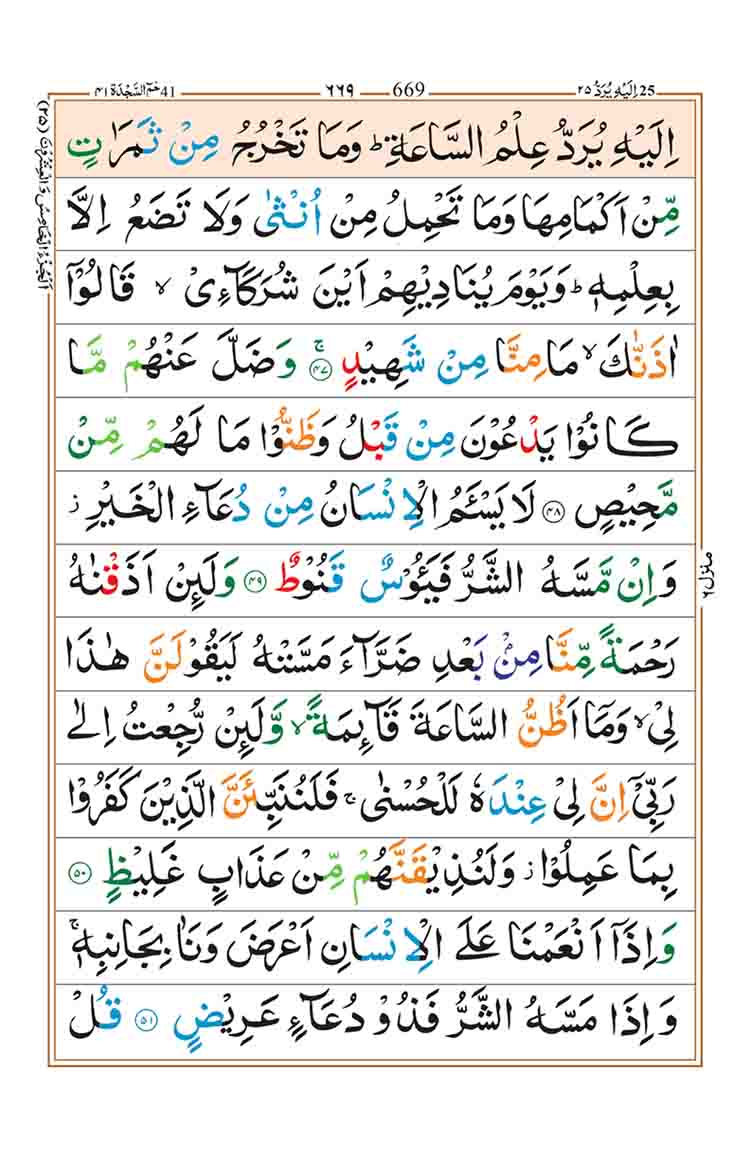 25 اِلَيْهِ يُرَدُّ ٢٥ 669 ٦٦٩ 41 حٰمٓ السَّجْدَة ٤١
اِلَيْهِ يُرَدُّ عِلْمُ السَّاعَةِ ؕ وَمَا تَخْرُجُ مِنْ ثَمَرٰتٍ
مِّنْ اَكْمَامِهَا وَمَا تَحْمِلُ مِنْ اُنْثٰى وَلَا تَضَعُ اِلَّا
بِعِلْمِهٖ ؕ وَيَوْمَ يُنَادِيْهِمْ اَيْنَ شُرَكَآءِىْ ۙ قَالُوْٓا
اٰذَنّٰكَ ۙ مَا مِنَّا مِنْ شَهِيْدٍ ۚ ﴿٤٧﴾ وَضَلَّ عَنْهُمْ مَّا
كَانُوْا يَدْعُوْنَ مِنْ قَبْلُ وَظَنُّوْا مَا لَهُمْ مِّنْ
مَّحِيْصٍ ﴿٤٨﴾ لَا يَسْـَٔمُ الْاِنْسَانُ مِنْ دُعَآءِ الْخَيْرِ ز
وَاِنْ مَّسَّهُ الشَّرُّ فَيَـُٔوْسٌ قَنُوْطٌ ﴿٤٩﴾ وَلَئِنْ اَذَقْنٰهُ
رَحْمَةً مِّنَّا مِنْۢ بَعْدِ ضَرَّآءَ مَسَّتْهُ لَيَقُوْلَنَّ هٰذَا
لِىْ ۙ وَمَآ اَظُنُّ السَّاعَةَ قَآئِمَةً ۙ وَّلَئِنْ رُّجِعْتُ اِلٰى
رَبِّىْٓ اِنَّ لِىْ عِنْدَهٗ لَلْحُسْنٰى ۚ فَلَنُنَبِّئَنَّ الَّذِيْنَ كَفَرُوْا
بِمَا عَمِلُوْا ز وَلَنُذِيْقَنَّهُمْ مِّنْ عَذَابٍ غَلِيْظٍ ﴿٥٠﴾
وَاِذَآ اَنْعَمْنَا عَلَى الْاِنْسَانِ اَعْرَضَ وَنَاٰ بِجَانِبِهٖ ۚ
وَاِذَا مَسَّهُ الشَّرُّ فَذُوْ دُعَآءٍ عَرِيْضٍ ﴿٥١﴾ قُلْ
اَلْجُزْءُ الْخَامِسُ وَالْعِشْرُوْنَ (٢٥)
منزل ٦